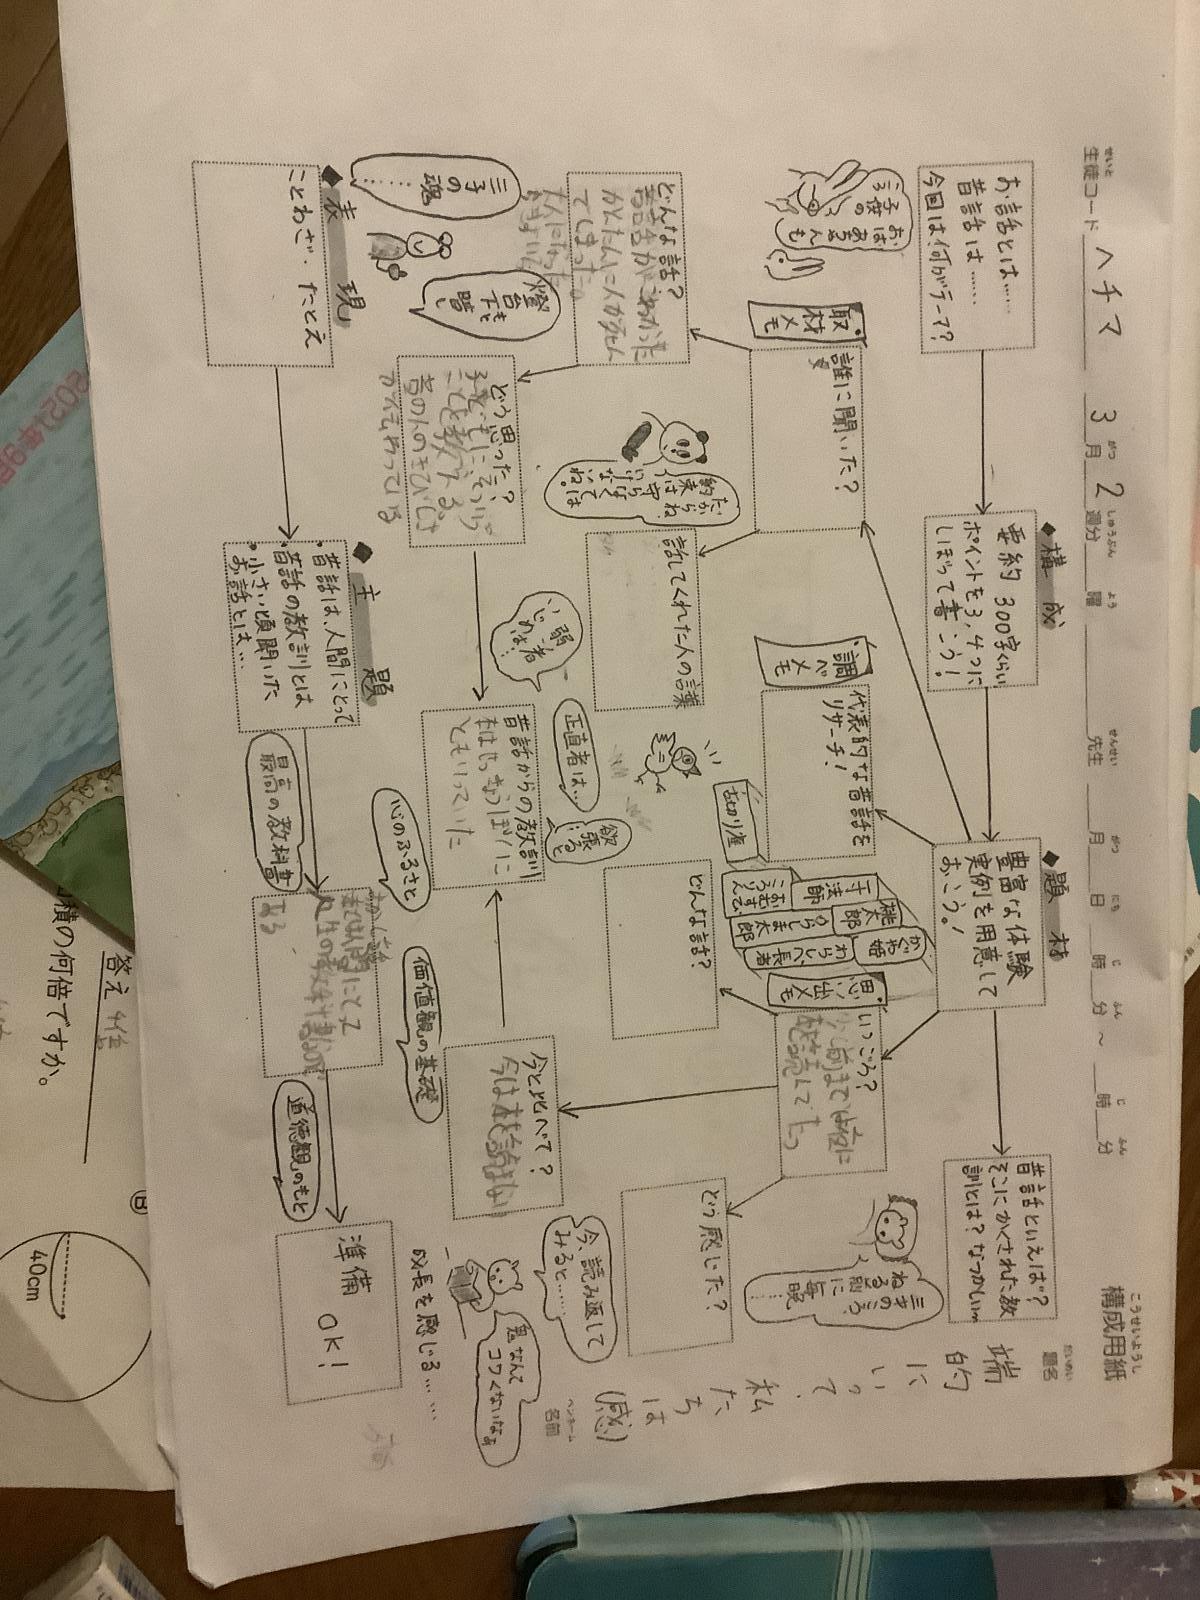 構成用紙
こうせいようし
せいと
生徒コード ヘチマ 3月2週分 曜 先生 月 日 時 分 ~ 時 分
がつ しゅうぶん よう せんせい がつ にち じ ふん じ ふん
題名
だいめい
端的にいって、私たちは(感)
ペンネーム
名前
◆構成
◆題材
お話とは……
昔話は……
今回は何がテーマ?
要約 300字くらい
ポイントを3,4つに
しぼって書こう!
豊富な体験
実例を用意して
おこう!
昔話といえば?
そこにかくされた教
訓とは?なつかしい
取材メモ
誰に聞いた?
調べメモ
代表的な昔話を
リサーチ!
舌切り雀
一寸法師
おむすび
ころりん
桃太郎
うらしま太郎
かぐや姫
わらしべ長者
思い出メモ
いつごろ?
三才のころ
ねる前に
毎晩……
どんな話?
昔話がこわかった
かんたんに人が死ん
でしまった。
だからね、
約束は守らなくては
いけないね。
話してくれた人の言葉
どんな話?
どう感じた?
三子の魂……
燈台もと暗し
どう思った?
昔の人のきびしさ
弱い者いじめは……
正直者は…
欲張ると…
昔話からの教訓
心のふるさと
価値観の基礎
今と比べて?
今は本を読まない
今、読み返して
みると……
鬼なんて
コワくないなぁ
成長を感じる……
◆表現
ことわざ・たとえ
◆主題
・昔話は、人間にとって
・昔話の教訓とは
・小さい頃聞いた
お話とは…
最高の教科書
道徳観のもと
準備
OK!
2021年9月
積の何倍ですか。
答え 4倍
40cm